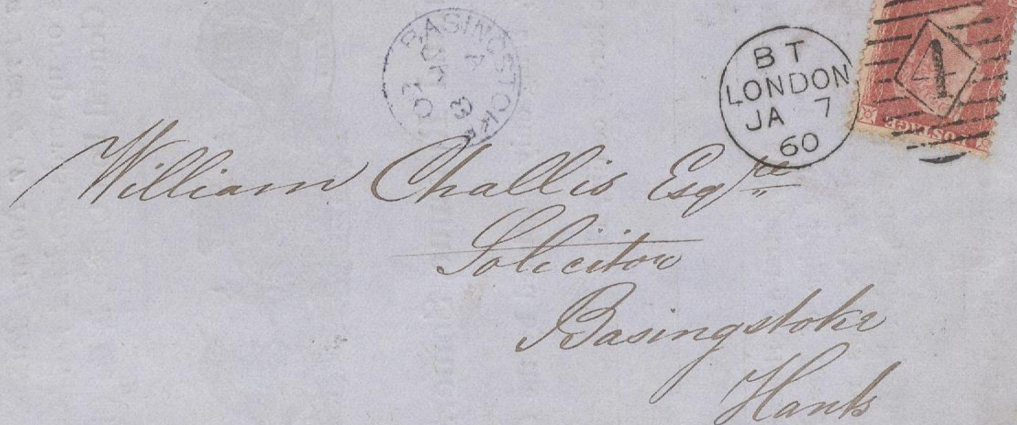 BASINGSTOKE
A
JA 8
60
BT
LONDON
JA 7
60
POSTAGE
William Challis Esqre
Solicitor
Basingstoke
Hants